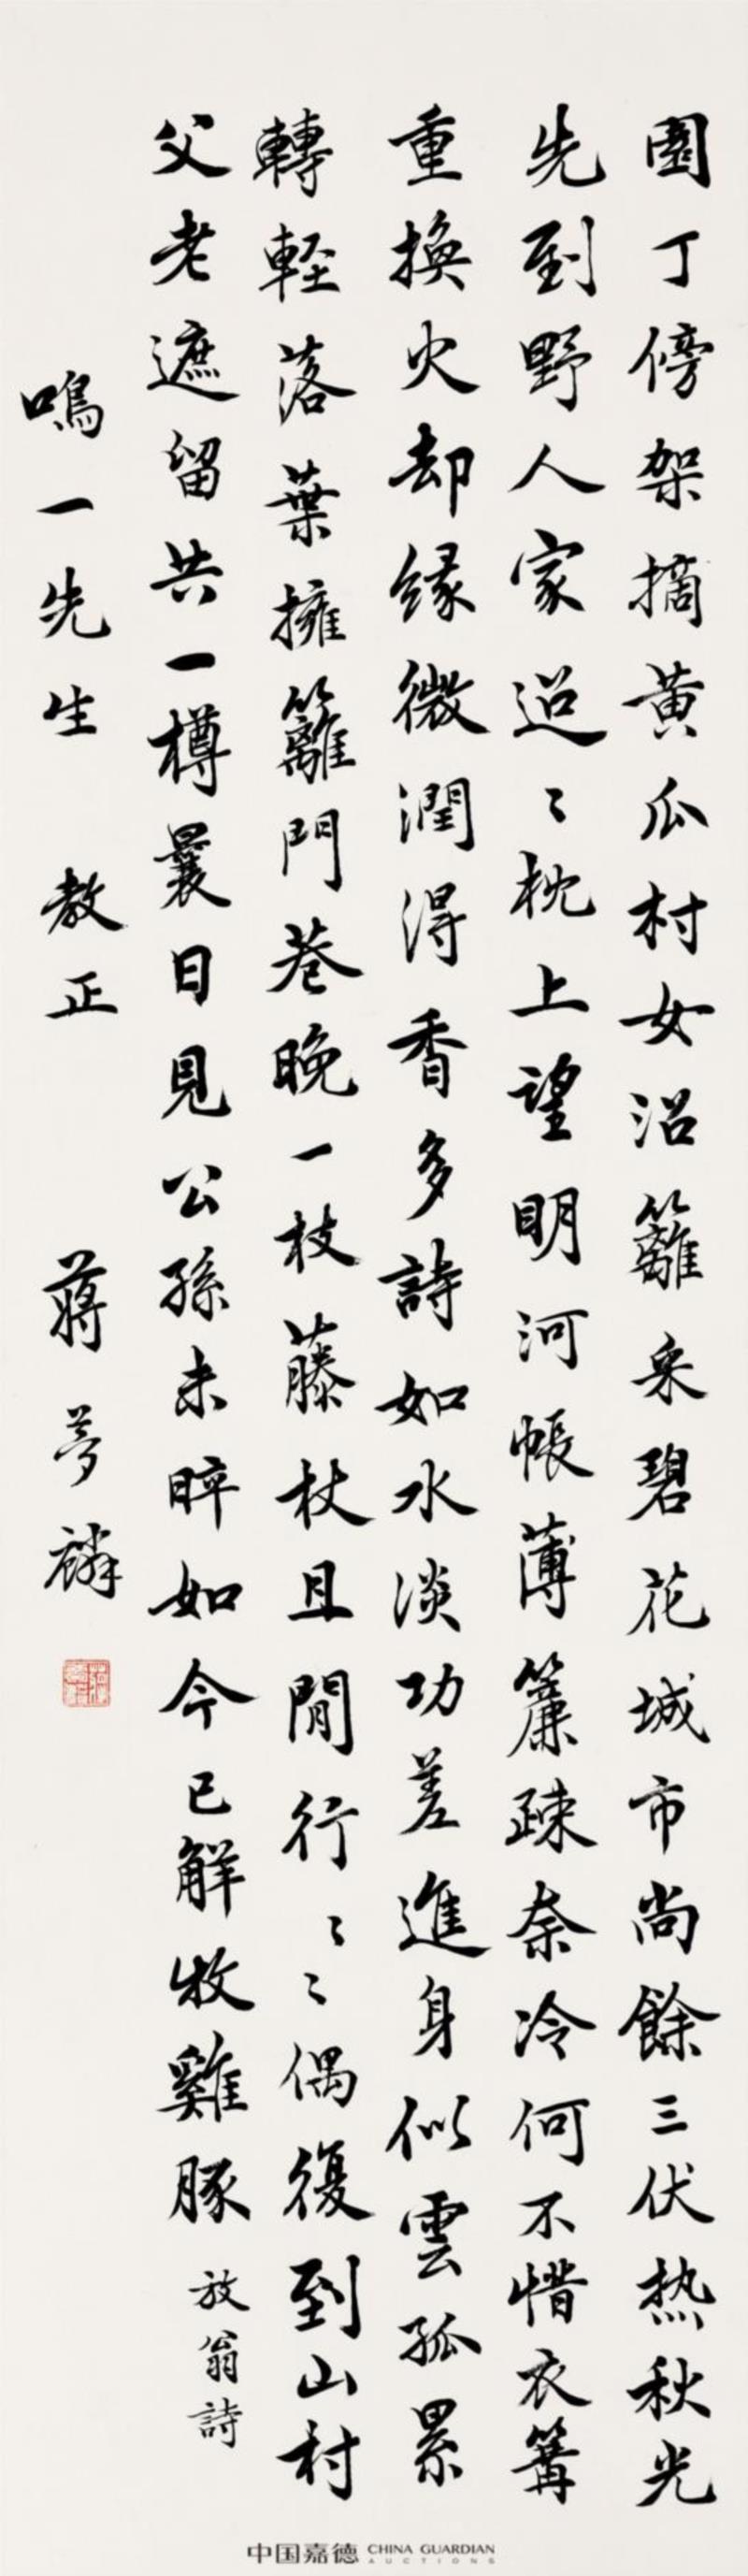 園丁傍架摘黄瓜村女沿籬采碧花城市尚餘三伏热秋光
先到野人家迢〻枕上望明河帳薄簾疎奈冷何不惜衣篝
重換火却緣微潤得香多詩如水淡功差進身似雲孤累
轉軽落葉擁籬門巷晚一枝藤杖且閒行〻〻偶復到山村
父老遮留共一樽曩日見公孫未晬如今已解牧雞豚 放翁詩
鳴一先生 教正 蔣夢麟
中国嘉德 CHINA GUARDIAN
AUCTIONS